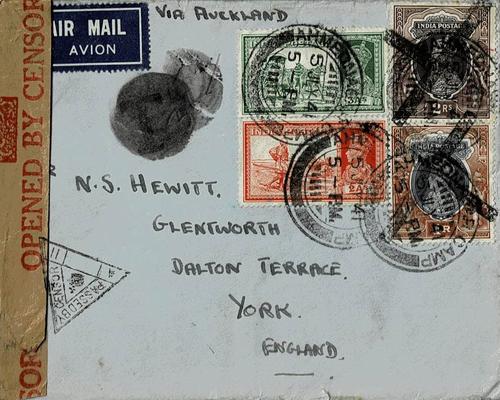 VIA AUCKLAND
AIR MAIL
AVION
OPENED BY CENSOR
INDIA POSTAGE
2 RS
INDIA POSTAGE
1 R
N.S. HEWITT.
GLENTWORTH
DALTON TERRACE.
YORK.
ENGLAND.
PASSED BY
CENSOR
5 - PM
CAMP